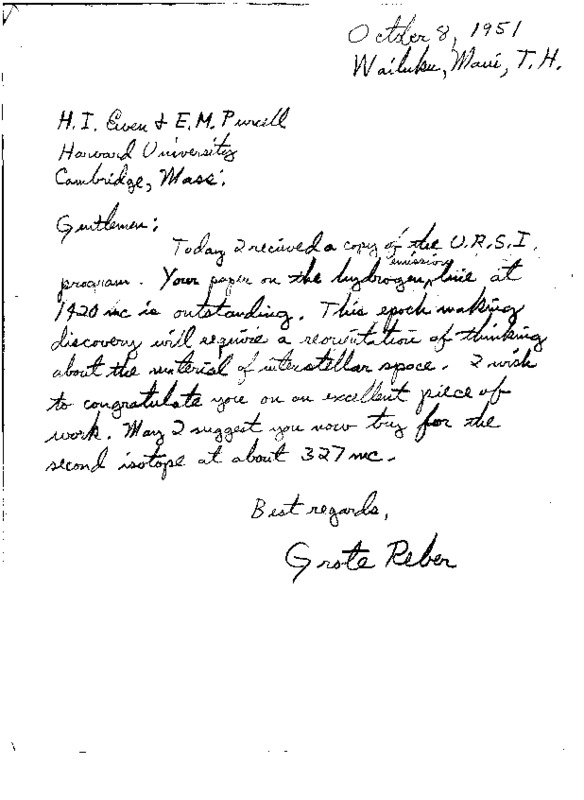 October 8, 1951
Wailuku, Maui, T.H.
H.I. Ewen & E.M. Purcell
Harvard University
Cambridge, Mass.
Gentlemen:
Today I received a copy of the U.R.S.I.
program. Your paper on the hydrogen emission line at
1420 mc is outstanding. This epoch making
discovery will require a reorientation of thinking
about the material of interstellar space. I wish
to congratulate you on an excellent piece of
work. May I suggest you now try for the
second isotope at about 327 mc.
Best regards,
Grote Reber